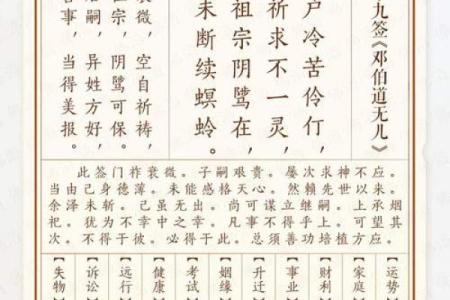 九签《邓伯道无儿》
户冷苦伶仃，
祈求不一灵，
祖宗阴骘在，
未断续螟蛉。
衰微，空自祈祷，
宗，阴骘可保。
嗣，异姓方好，
事，当得美报。
此签门祚衰微。子嗣艰贵。屡次求神不应。
当由己身德薄。未能感格天心。然赖先世以来。
余泽未斩。己虽无出。尚可谋立继嗣。上承烟
祀。犹为不幸中之幸。凡事不得乎上。可望其
次。不得于彼。必得于此。总须善功培植方应。
【运势】
【家庭】
【财利】
【事业】
【升迁】
【姻缘】
【考试】
【健康】
【远行】
【诉讼】
【失物】